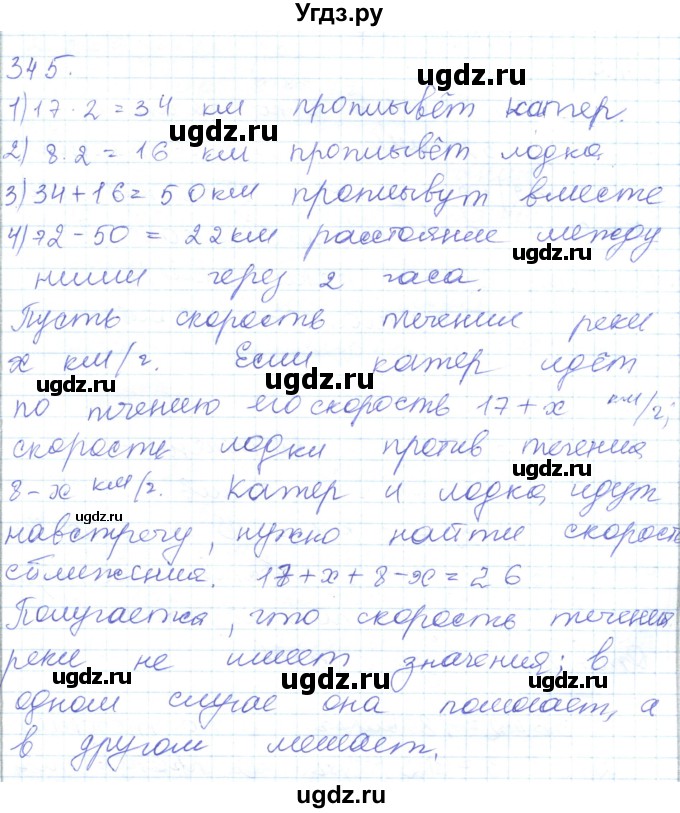 Угдз.ру
345.
1) 17 · 2 = 34 км проплывёт катер.
ugdz.ru
2) 8 · 2 = 16 км проплывёт лодка
ugdz.ru
3) 34 + 16 = 50 км проплывут вместе
4) 72 - 50 = 22 км расстояние между
ugdz.ru
ними через 2 часа.
ugdz.ru
Пусть скорость течения реки
x км/ч. Если катер идёт
ugdz.ru ugdz.ru
по течению его скорость 17 + x км/ч,
скорость лодки против течения
ugdz.ru
8 - x км/ч. Катер и лодка идут
ugdz.ru
навстречу, нужно найти скорость
сближения. 17 + x + 8 - x = 26
ugdz.ru
Получается, что скорость течения
реки не имеет значения; в
ugdz.ru ugdz.ru ugdz.ru
одном случае она помогает, а
в другом мешает.
ugdz.ru